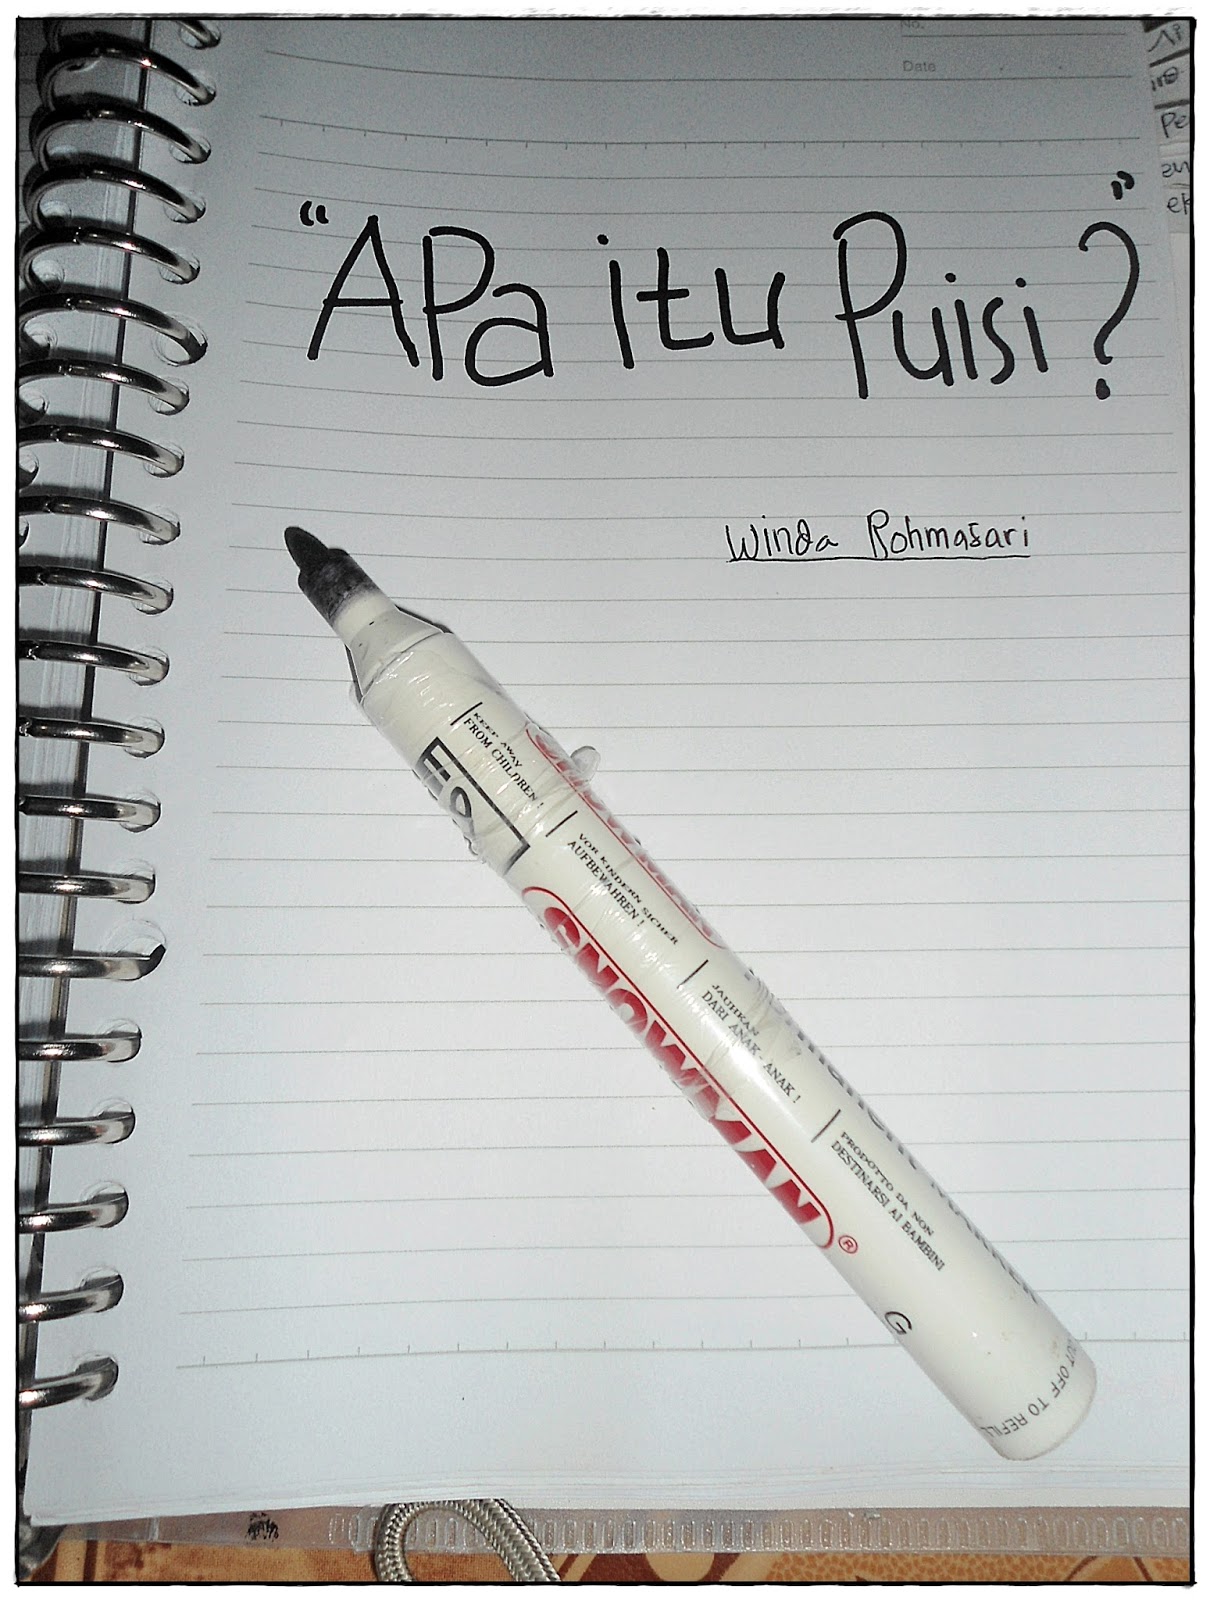 No.
Date
"APa itu Puisi?"
Winda Rohmasari
KEEP AWAY
FROM CHILDREN !
VOR KINDERN SICHER
AUFBEWAHREN !
JAUHKAN
DARI ANAK - ANAK !
PRODOTTO DA NON
DESTINARSI AI BAMBINI
SNOWMAN
SNOWMAN ®
G
MARKER
OFF TO REFILL